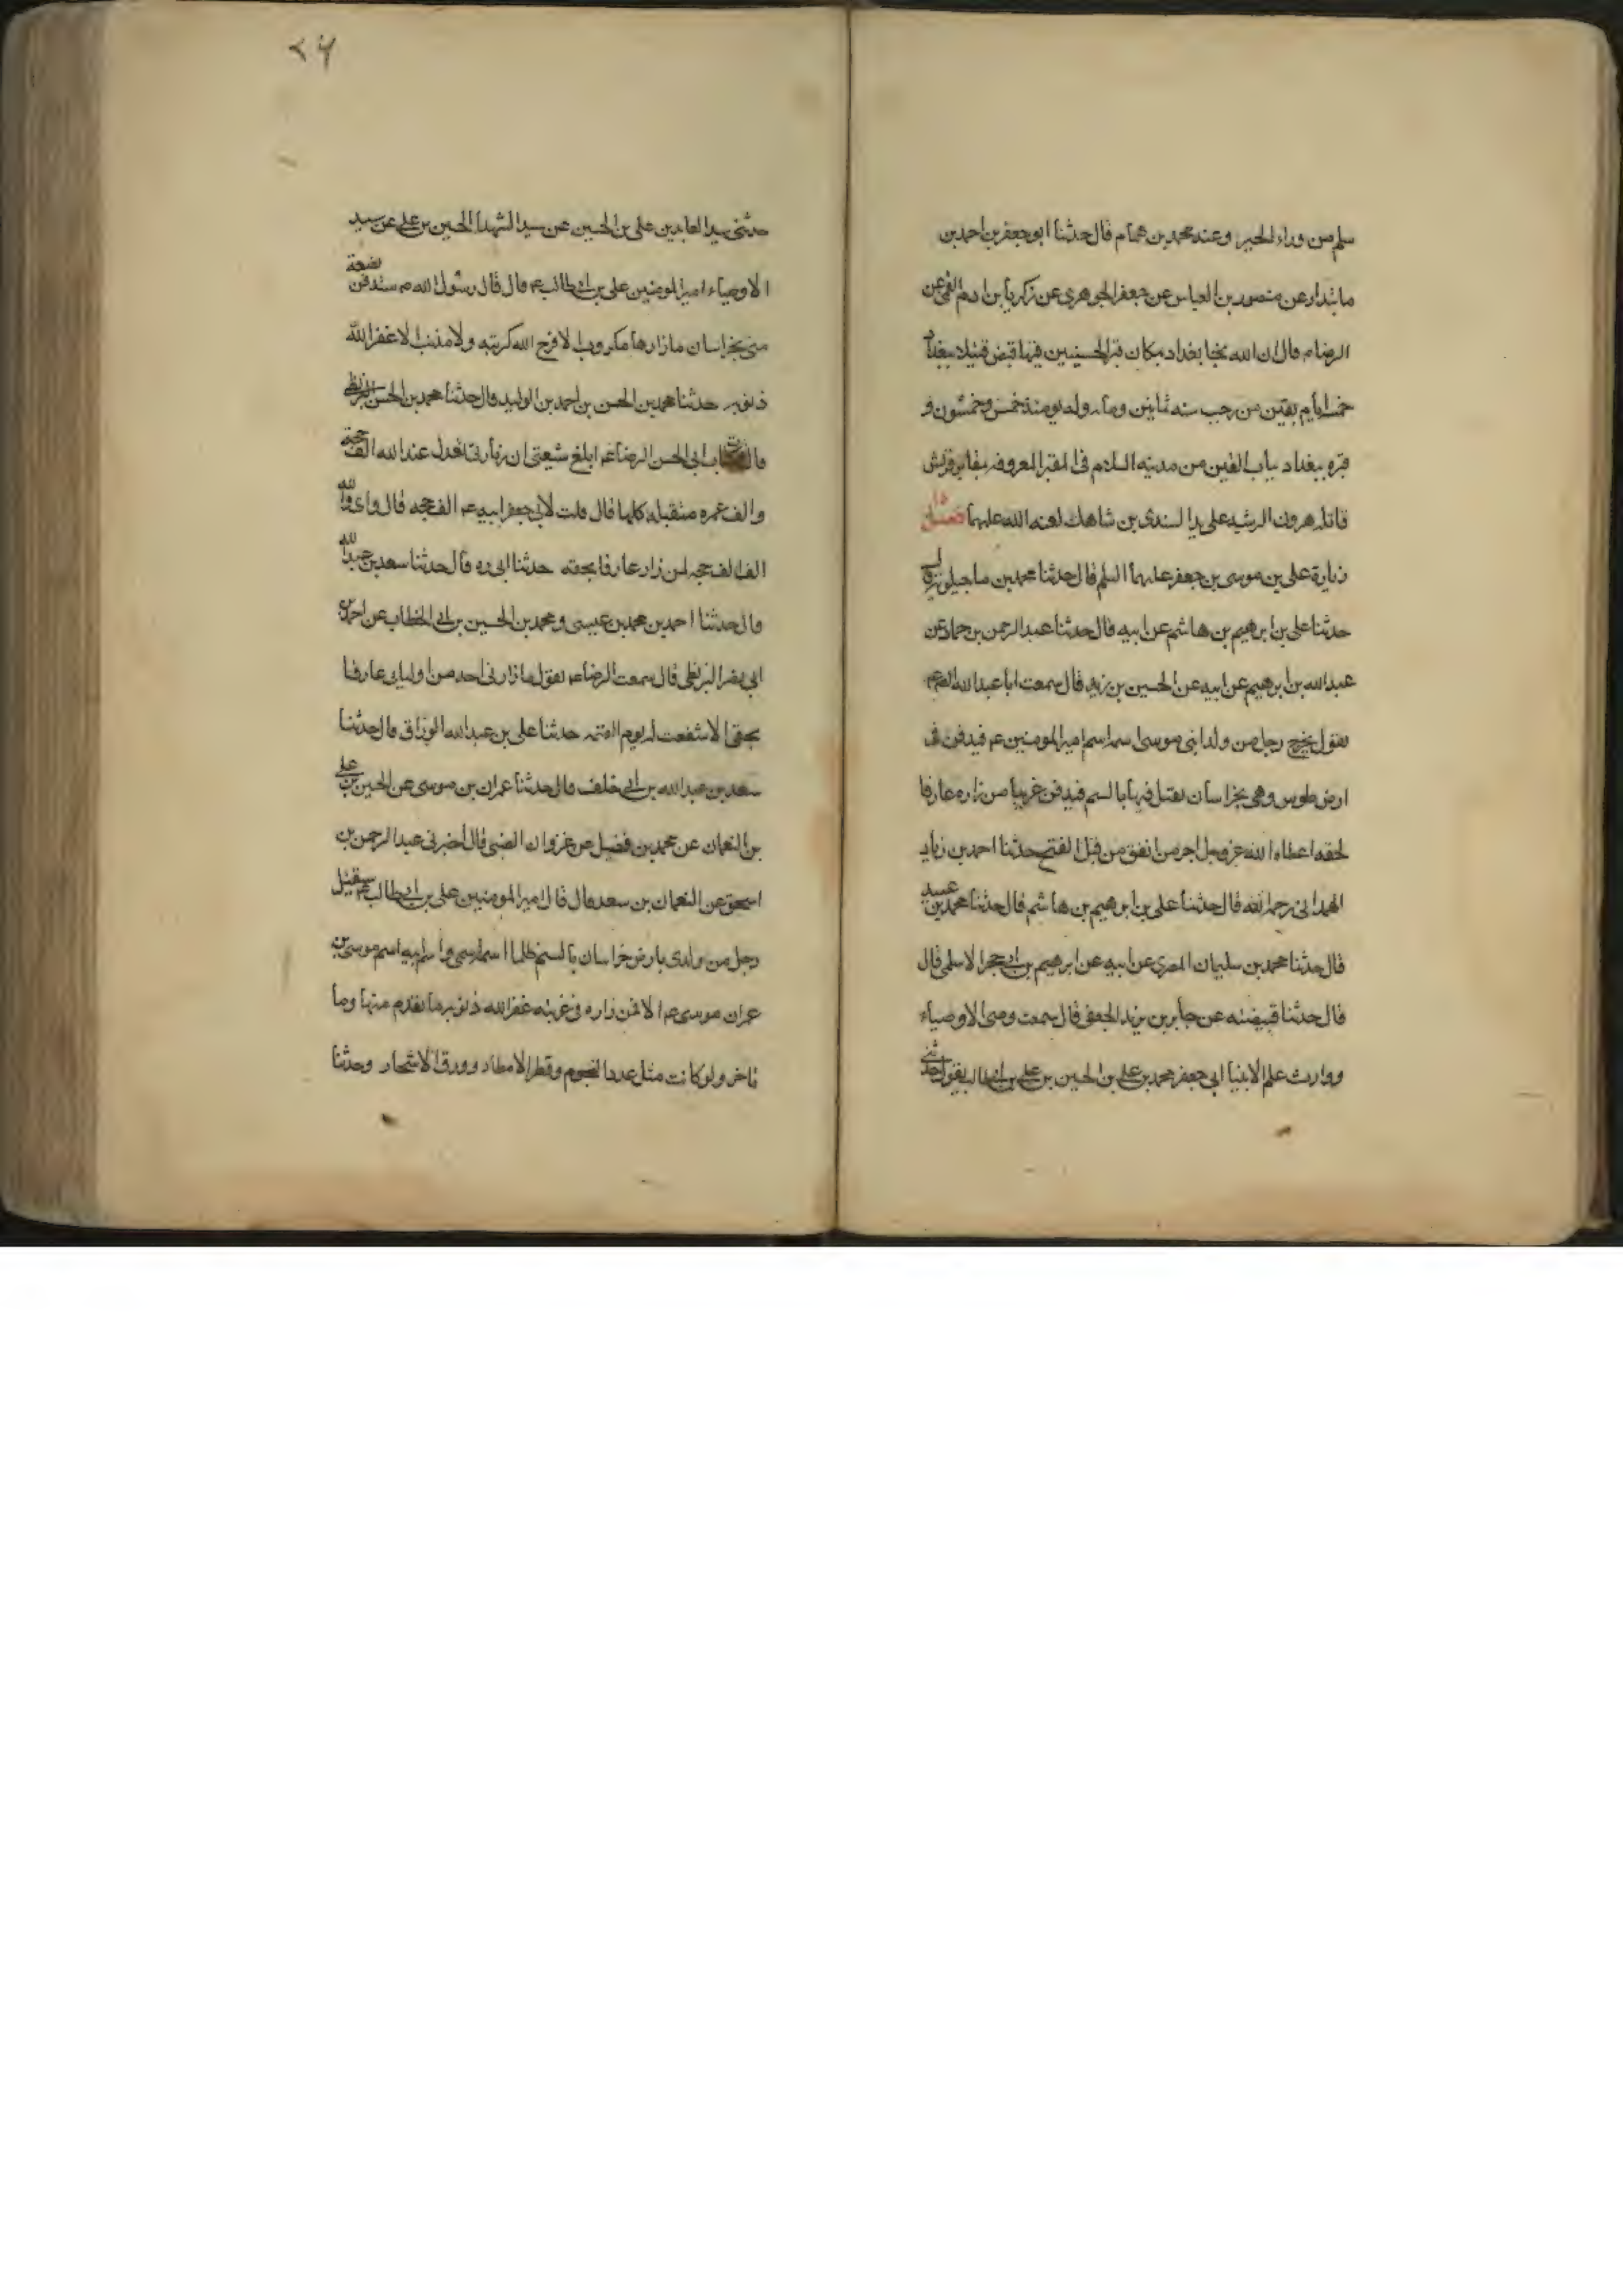 سلم من وراء الحير وعند محمد بن همام قال حدثنا ابو جعفر بن احمد بن
مابندار عن منصور بن العباس عن جعفر الجوهري عن زكريا بن ادم القمي عن
الرضا م قال ان الله نجا بغداد بمكان قبر الحسينيين فيها قبض قتيلا ببغداد
خمس ايام بقين من رجب سنه ثمانين ومايه وله يومئذ خمس وخمسون و
قبره ببغداد بباب التين من مدينه السلام في المقبر المعروفه بمقابر قريش
قاتله هرون الرشيد على يد السندى بن شاهك لعنه الله عليهما فصل
زيارة على بن موسى بن جعفر عليهما السلم قال حدثنا محمد بن ماجيلويه قال
حدثنا على بن ابرهيم بن هاشم عن ابيه قال حدثنا عبد الرحمن بن حماد عن
عبد الله بن ابرهيم عن ابيه عن الحسين بن زيد قال سمعت ابا عبد الله
يقول يخرج رجل من ولد ابنى موسى اسمه اسم امير المومنين عم فيدفن فى
ارض طوس وهى بخراسان يقتل فيها بالسم فيدفن غريبا من زاره عارفا
لحقه اعطاه الله عز وجل اجر من انفق من قبل الفتح حدثنا احمد بن زياد
الهمدانى رحمه الله قال حدثنا على بن ابرهيم بن هاشم قال حدثنا محمد بن عيسى
قال حدثنا محمد بن سليمان المصرى عن ابيه عن ابرهيم بن ابى حجر الاسلمى قال
قال حدثنا قبيضه عن جابر بن يزيد الجعفى قال سمعت وصى الاوصياء
ووارث علم الانبيا ابى جعفر محمد بن على بن الحسين بن على بن ابيطالب يقول حدثنى
٢۶
حدثنى سيد العابدين على بن الحسين عن سيد الشهدا الحسين بن على عن سيد
الاوصياء امير المومنين على بن ابى طالب عم قال قال رسول الله م ستدفن بضعة
منى بخراسان ما زارها مكروب الا فرج الله كربته ولا مذنب الا غفر الله
ذنوبه حدثنا محمد بن الحسن بن احمد بن الوليد قال حدثنا محمد بن الحسن
قال كتاب ابى الحسن الرضا عم ابلغ شيعتى ان زيارتى تعدل عند الله الف حجة
والف عمره متقبله كلها قال قلت لابى جعفر ابنه عم الف حجه قال واى والله
الف الف حجه لمن زار عارفا بحقه حدثنا ابى ره قال حدثنا سعد بن عبد الله
قال حدثنا احمد بن محمد بن عيسى ومحمد بن الحسين بن ابى الخطاب عن احمد بن
ابى نصر البزنطى قال سمعت الرضا عم يقول ما زارنى احد من اوليايى عارفا
بحقى الا شفعت له يوم القيمه حدثنا على بن عبد الله الوراق قال حدثنا
سعد بن عبد الله بن ابى خلف قال حدثنا عمران بن موسى عن الحسين بن على
بن النعمان عن محمد بن فضيل عن غزوان الضبى قال اخبرنى عبد الرحمن بن
اسحق عن النعمان بن سعد قال قال امير المومنين على بن ابى طالب عم سيقتل
رجل من ولدى بارض خراسان بالسم ظلما اسمه اسمى واسم ابيه اسم موسى بن
عمران موسى عم الا فمن زاره فى غربته غفر الله ذنوبه ما تقدم منها وما
تاخر ولو كانت مثل عدد النجوم وقطر الامطار وورق الاشجار وحدثنا